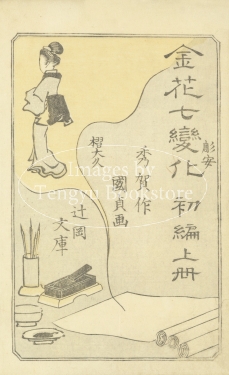 金花七變化 初編上冊
彫安
秀賀作
國貞画
櫂大久
辻岡
文庫
Images from
Tengyu Bookstore